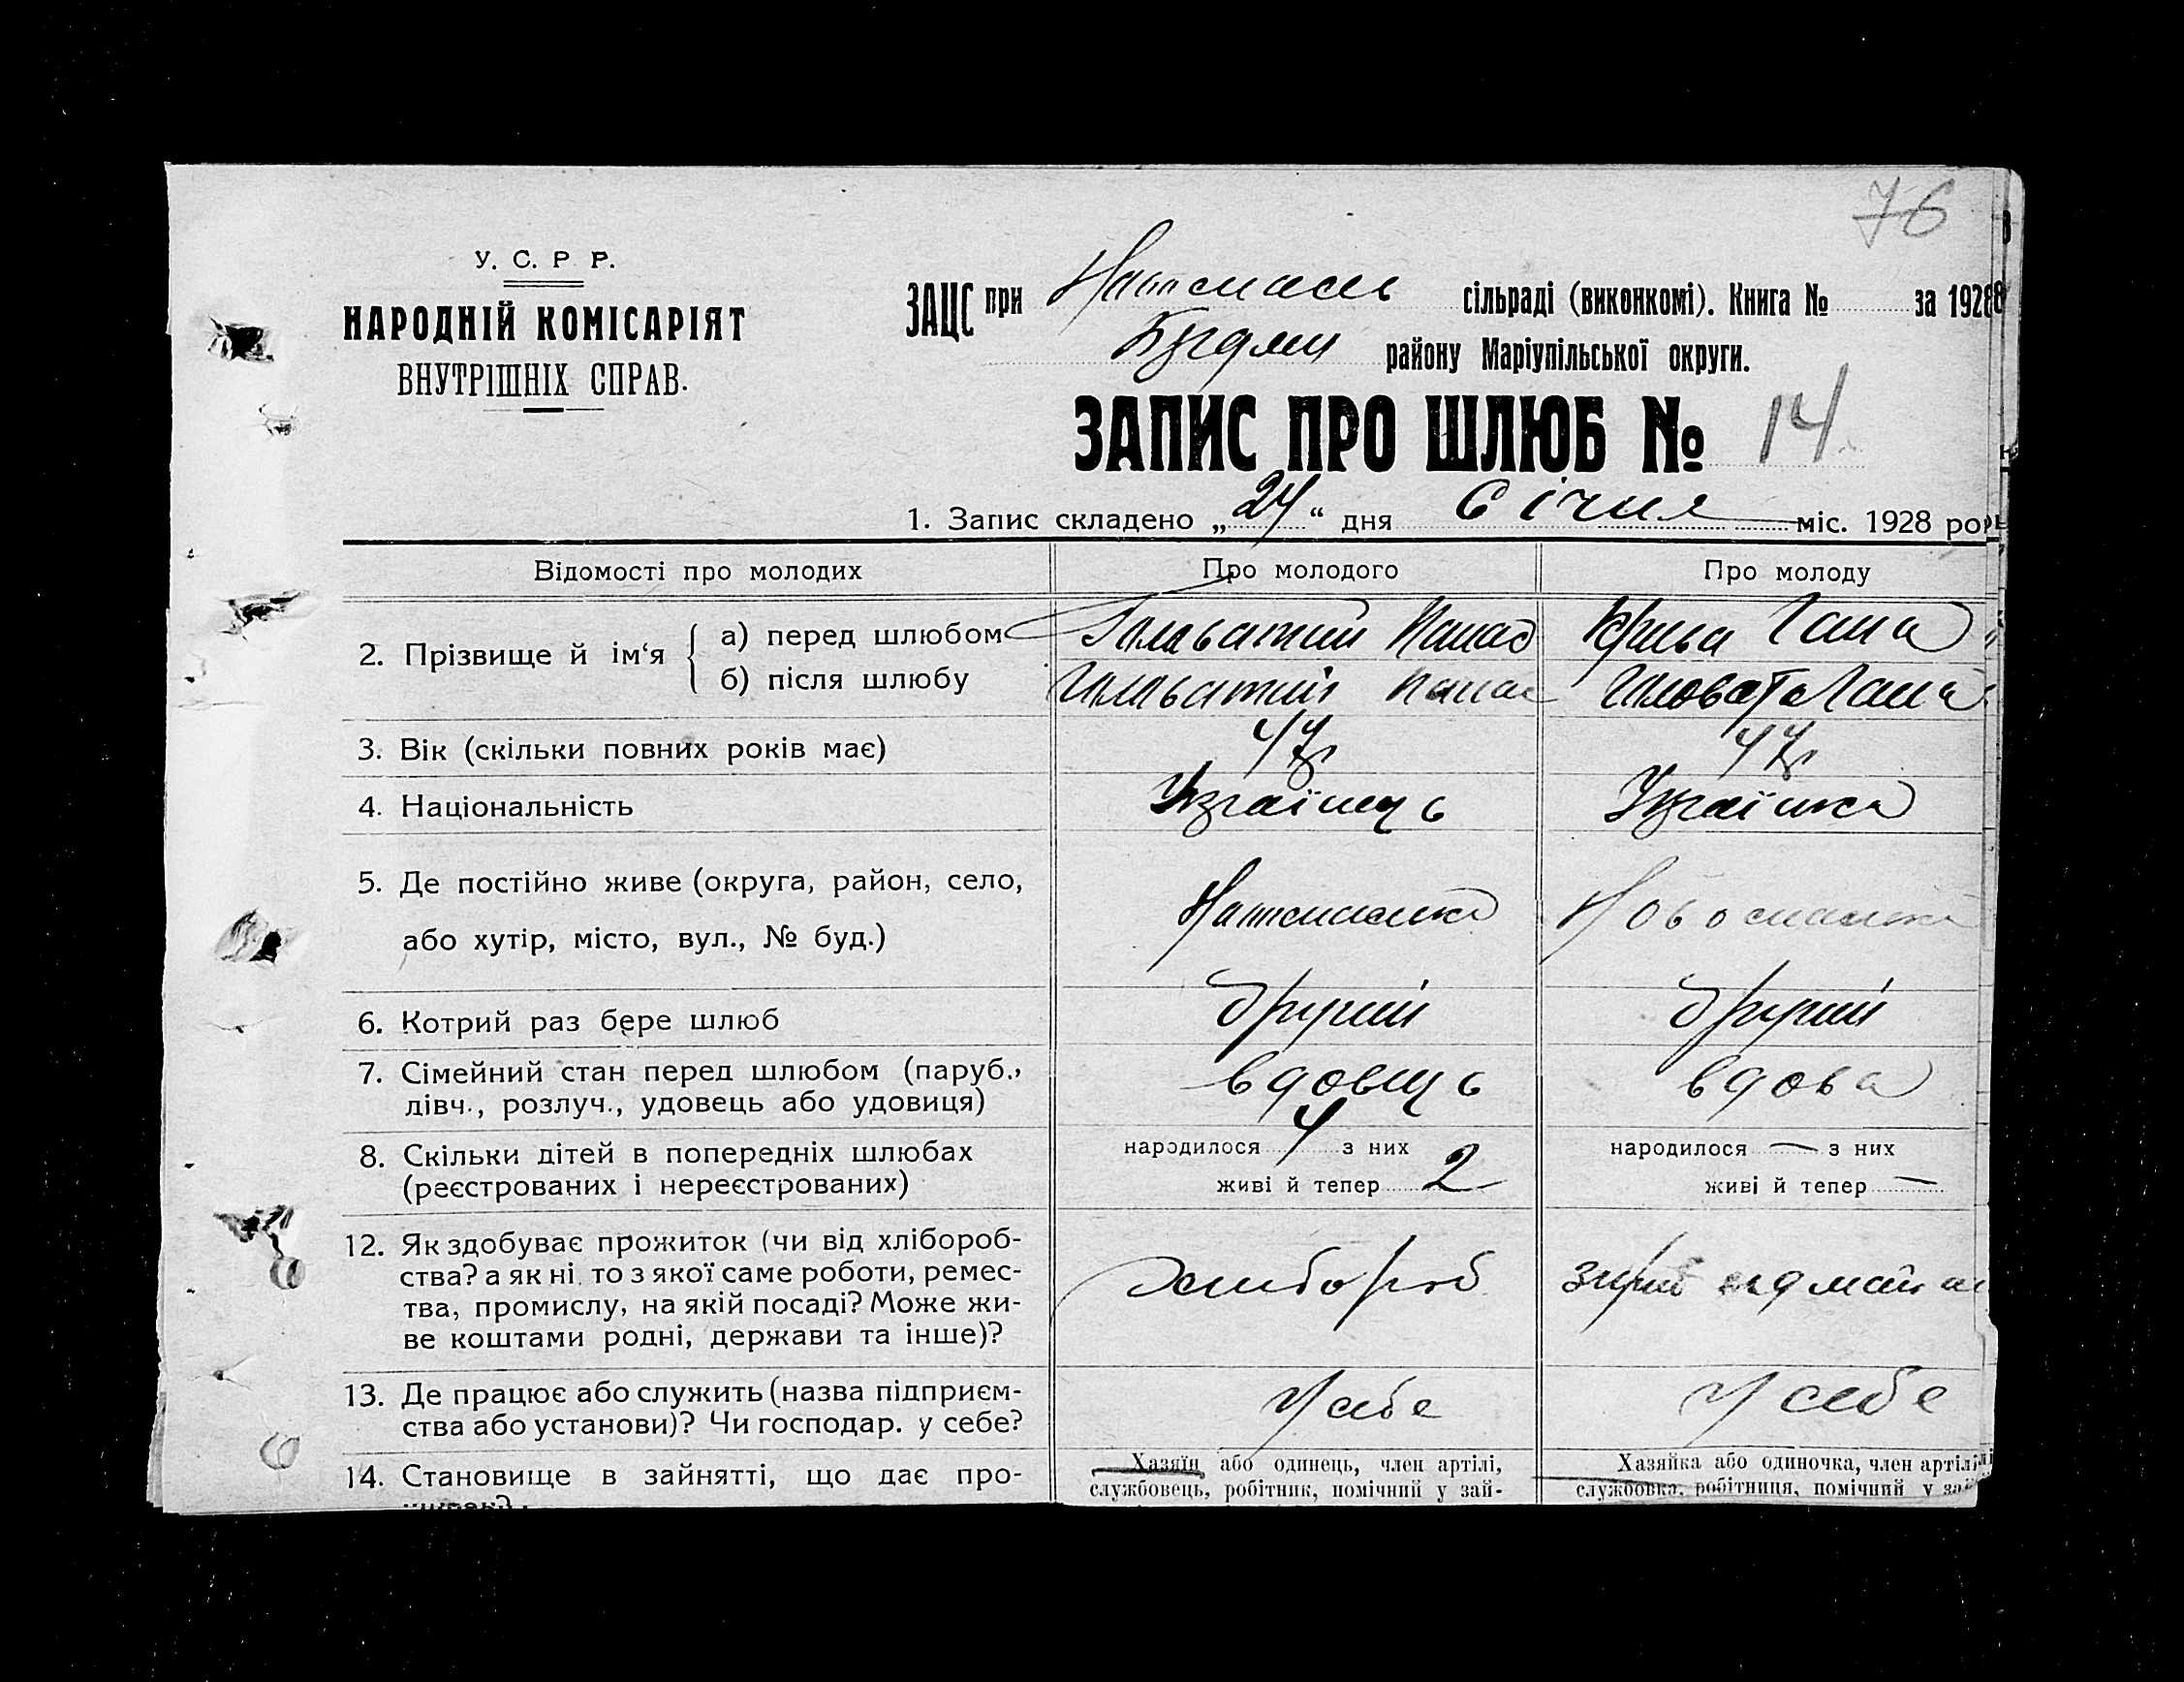 76
У. С. Р. Р.
НАРОДНІЙ КОМІСАРІЯТ
ВНУТРІШНІХ СПРАВ.
ЗАЦС при сільраді (виконкомі). Книга № за 1928
району Маріупільської округи.
ЗАПИС ПРО ШЛЮБ № 14
1. Запис складено „24“ дня Січня міс. 1928 ро
Відомості про молодих Про молодого Про молоду
2. Прізвище й ім‘я { а) перед шлюбом Панас Крива Гана
б) після шлюбу Панас Гана
3. Вік (скільки повних років має) 47р 47р
4. Національність Українець Українка
5. Де постійно живе (округа, район, село,
або хутір, місто, вул., № буд.)
6. Котрий раз бере шлюб другий другий
7. Сімейний стан перед шлюбом (паруб.,
дівч., розлуч., удовець або удовиця) вдовець вдова
8. Скільки дітей в попередніх шлюбах народилося 4 з них народилося — з них
(реєстрованих і нереєстрованих) живі й тепер 2 живі й тепер —
12. Як здобуває прожиток (чи від хлібороб-
ства? а як ні, то з якої саме роботи, ремес-
тва, промислу, на якій посаді? Може жи-
ве коштами родні, держави та інше)?
хлібороб
13. Де працює або служить (назва підприєм-
ства або установи)? Чи господар. у себе? У себе У себе
14. Становище в зайнятті, що дає про-
Хазяїн або одинець, член артілі,
службовець, робітник, помічний у зай-
Хазяйка або одиночка, член артілі
службовка, робітниця, помічний у зай